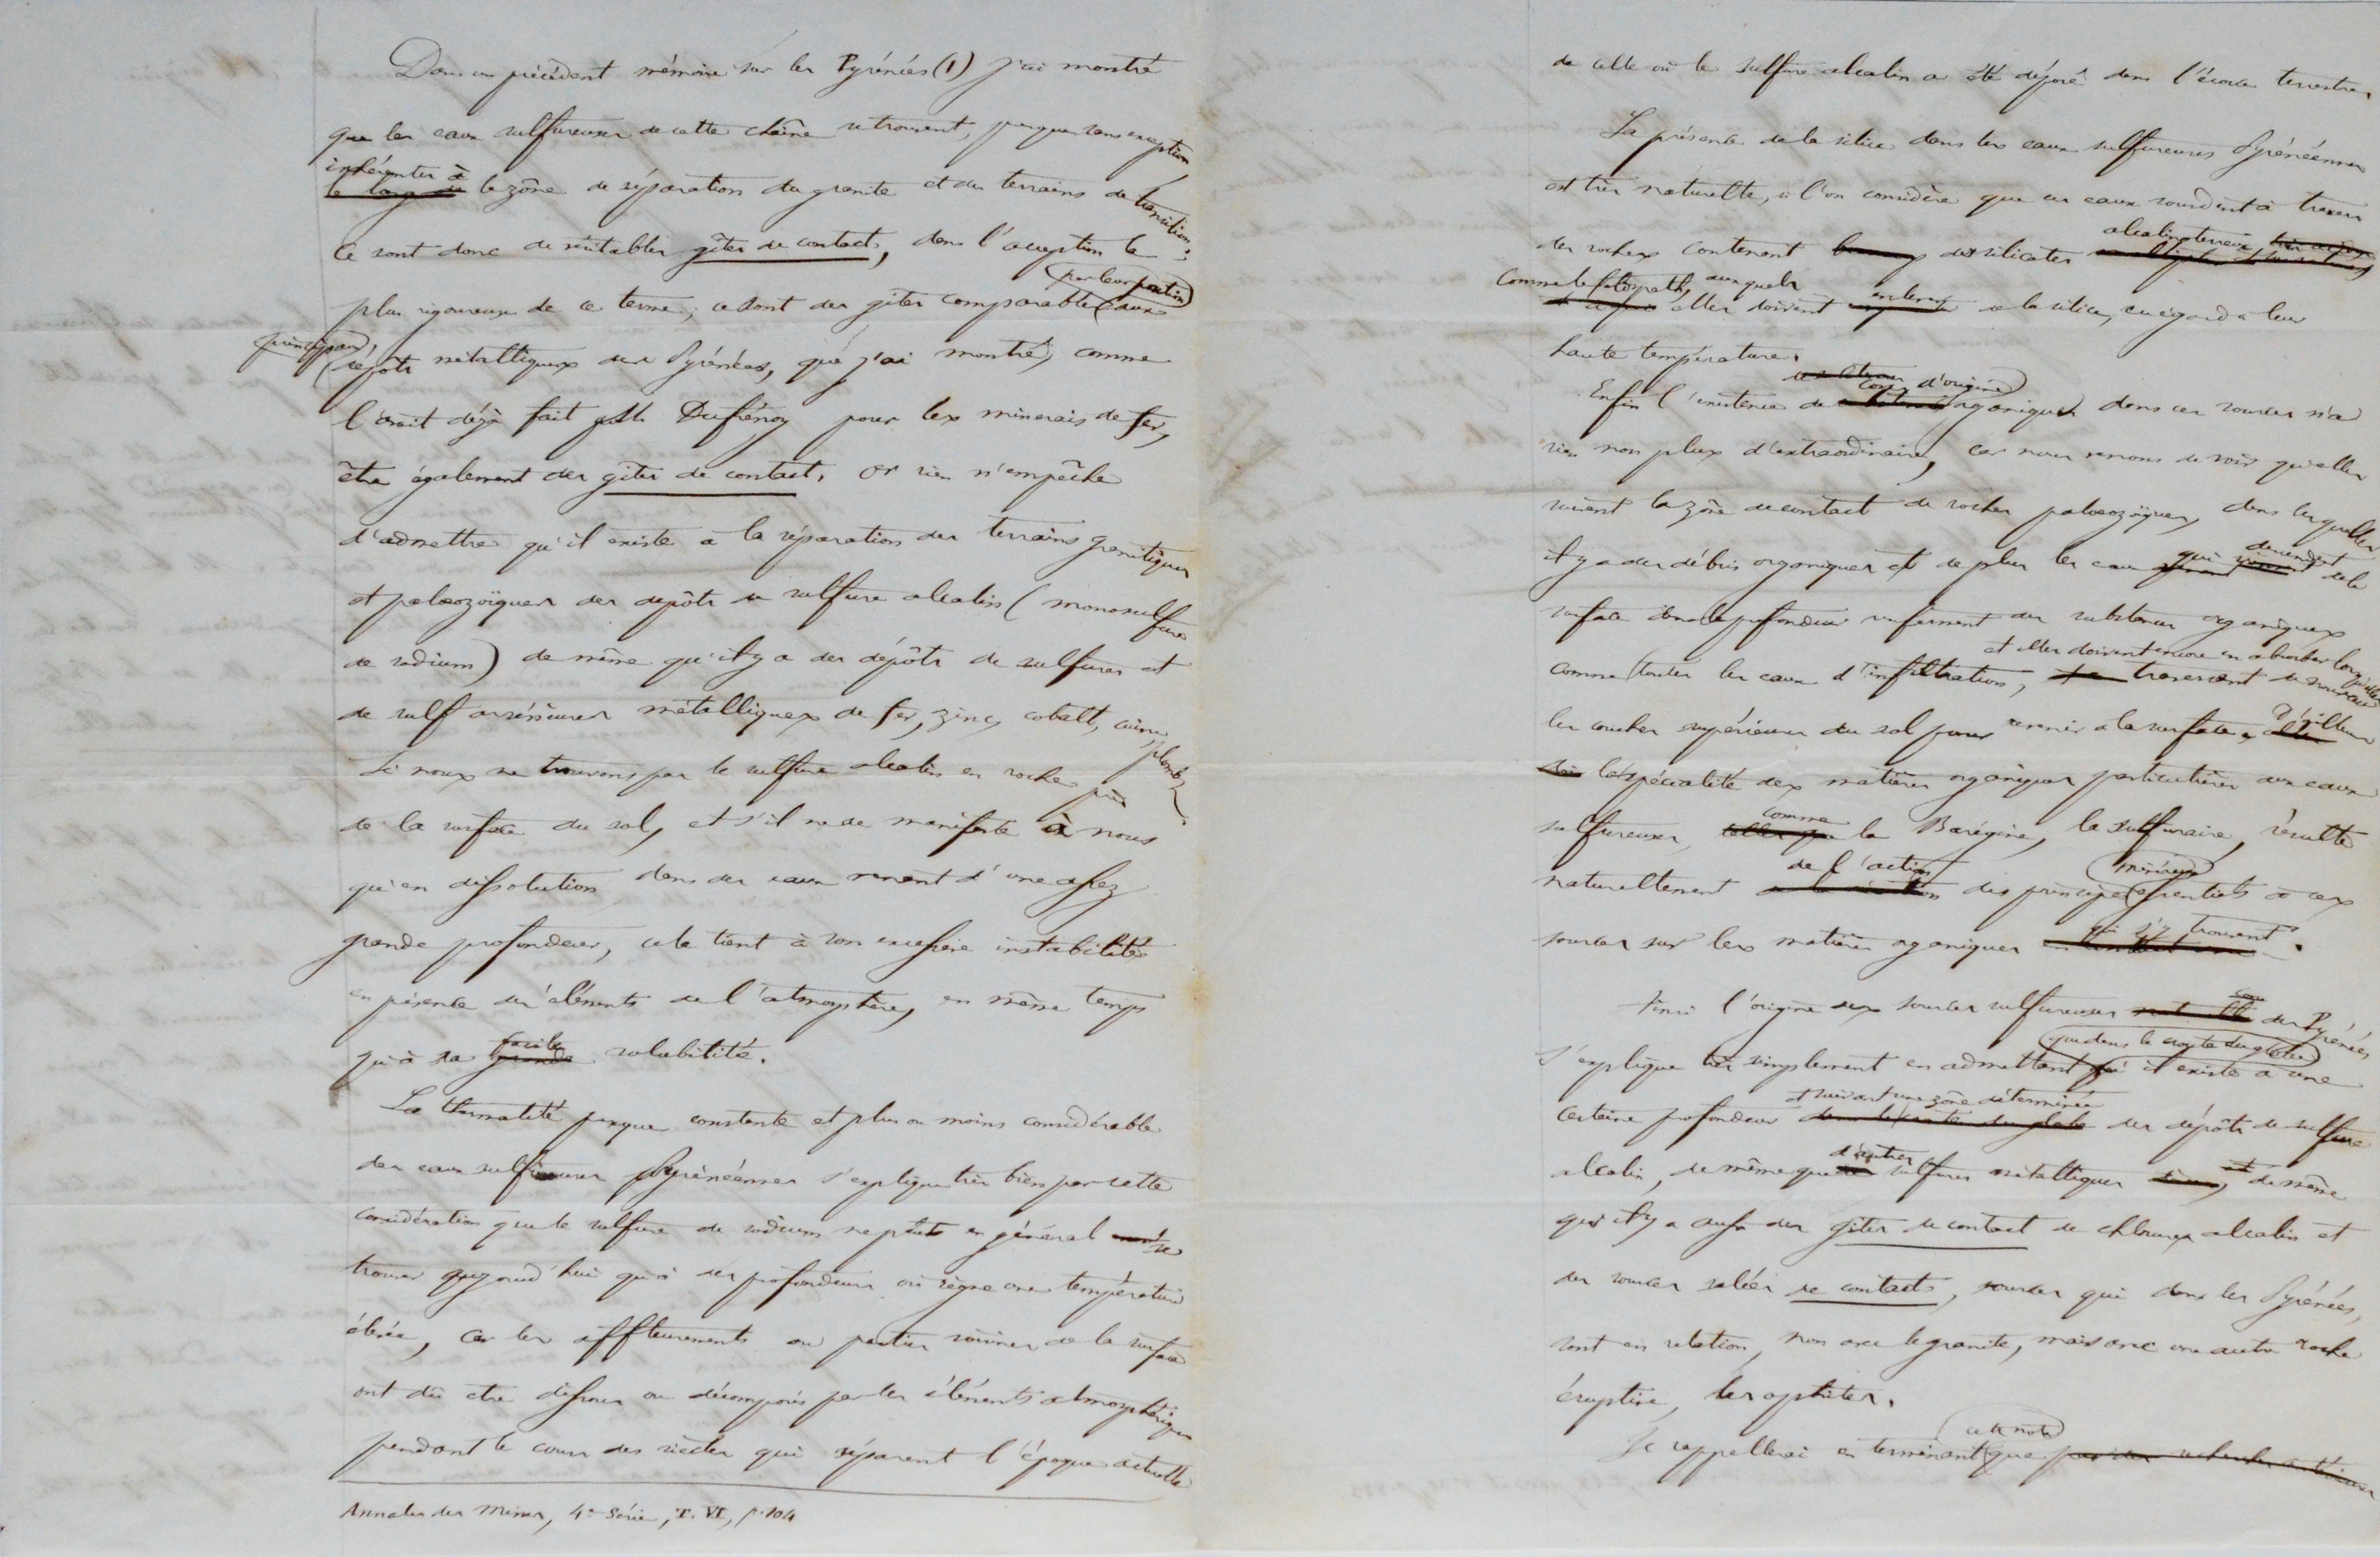 Dans un précédent mémoire sur les Pyrénées (1) j'ai montré
que les eaux sulfureuses de cette chaîne se trouvent, presque sans exception,
inhérentes à
le long de la zône de séparation du granite et des terrains de transition ;
Ce sont donc de véritables gîtes de contact, dans l'acception la
par leur position
plus rigoureuse de ce terme ; ce sont des gîtes comparables aux
principaux
dépôts métalliques des Pyrénées, que j'ai montré, comme
l'avait déjà fait Mr. Dufrénoy pour les minerais de fer,
être également des gîtes de contact. Or rien n'empêche
d'admettre qu'il existe à la séparation des terrains granitiques
et palæozoïques des dépôts de sulfure alcalin (monosulfure
de sodium) de même qu'il y a des dépôts de sulfures et
de sulfarséniures métalliques de fer, zinc, cobalt, cuivre, plomb &.
Si nous ne trouvons pas le sulfure alcalin en roche près
de la surface du sol, et s'il ne se manifeste à nous
qu'en dissolution dans des eaux venant d'une assez
grande profondeur, cela tient à son excessive instabilité
en présence des éléments de l'atmosphère, en même temps
facile
qu'à sa grande solubilité.
La thermalité presque constante et plus ou moins considérable
des eaux sulfureuses Pyrénéennes s'explique très bien par cette
considération que le sulfure de sodium ne peut en général se
trouver aujourd'hui qu'à des profondeurs où règne une température
élevée, car les affleurements ou parties voisines de la surface
ont dû être dissous ou décomposés par les éléments atmosphériques
pendant le cours des siècles qui séparent l'époque actuelle
Annales des Mines, 4e Série, T. VI, p. 104
de celle où le sulfure alcalin a été déposé dans l'écorce terrestre.
La présence de la silice dans les eaux sulfureuses Pyrénéennes
est très naturelle, si l'on considère que ces eaux sourdent à travers
alcalins terreux
des roches contenant des silicates
Comme le feldspath, auxquels enlever
elles doivent de la silice, eu égard à leur
haute température.
corps d'origine
Enfin l'existence de organiques dans ces sources n'a
rien non plus d'extraordinaire, car nous venons de voir qu'elles
suivent la zône de contact de roches palæozoïques, dans lesquelles
descendent
il y a des débris organiques et de plus les eaux qui de la
surface dans la profondeur renferment des substances organiques
et elles doivent encore en absorber lorsqu'elles
comme toutes les eaux d'infiltration, traversent de nouveau
les couches supérieures du sol pour revenir à la surface. D'ailleurs
la spécialité des matières organiques particulières aux eaux
comme
sulfureuses, telles que la Barégine, la sulfuraire, résulte
de l'action minéraux
naturellement des principes essentiels à ces
qui s'y trouvent
sources sur les matières organiques.
Ainsi l'origine des sources sulfureuses des Pyrénées
que dans la croûte du globe
s'explique très simplement en admettant qu'il existe à une
et suivant une zône déterminée
certaine profondeur dans la croûte du globe des dépôts de sulfure
d'autres
alcalin, de même que sulfures métalliques et de même
qu'il y a aussi des gîtes de contact de chlorures alcalin et
des sources salées de contact, sources qui dans les Pyrénées,
sont en relation, non avec le granite, mais avec une autre roche
éruptive, les ophites.
cette note
Je rappellerai en terminant que par des recherches